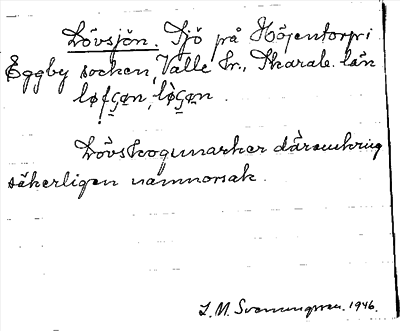 Lövsjön. Sjö på Höjentorp i
Eggby socken, Valle hr., Skarab. län
løfʃən, lø̀ʃən.
Lövskogsmarker däromkring
säkerligen namnorsak.
S. M. Svenungsson. 1946.